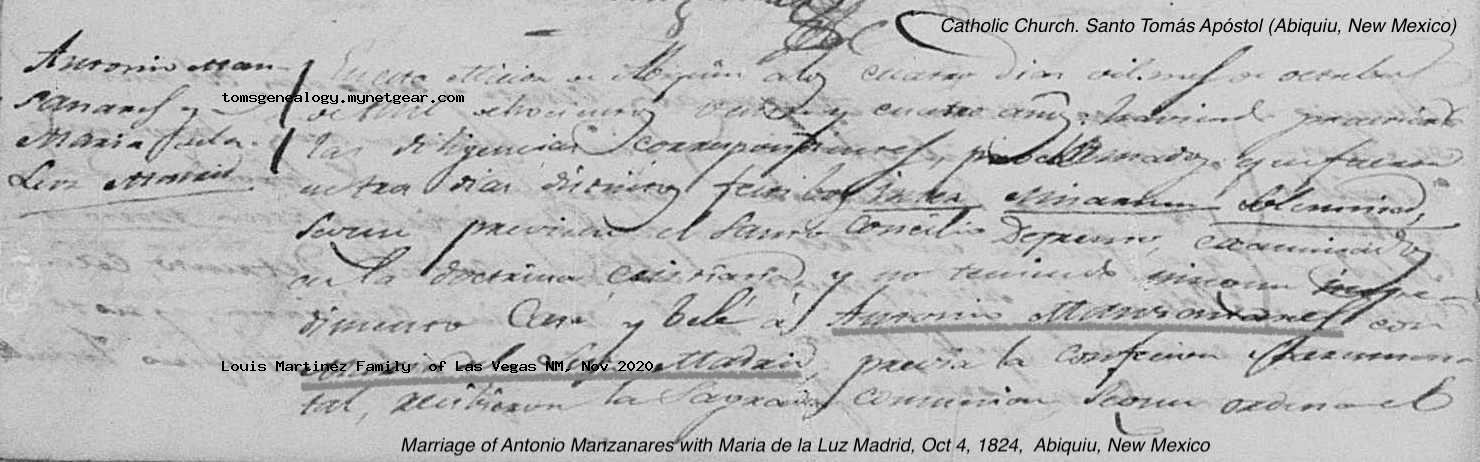 Catholic Church. Santo Tomás Apóstol (Abiquiu, New Mexico)
Antonio Man-
sanares y
Maria de la
Luz Madrid
En esta Micion de Abiquiu a los cuatro dias del mes de octubre
tomsgenealogy.mynetgear.com
de Mil ochocientos veinte y cuatro años haviendo practicado
las diligencias correspondientes, y que fueron
en tres dias festibos inter Misarum Solemnia,
Segun previene el Santo Concilio examinados
en la doctrina cristiana y no teniendo ningun impe-
dimento Casé y belé á Antonio Mansanares con
Louis Martinez Family of Las Vegas NM. Nov 2020
Madrid previa la confecion Sacramen-
tal, recibieron la Sagrada comunion Segun ordena el
Marriage of Antonio Manzanares with Maria de la Luz Madrid, Oct 4, 1824, Abiquiu, New Mexico